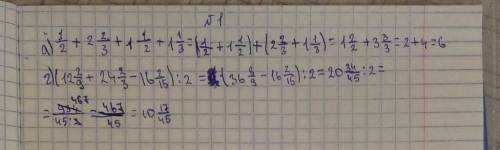 №1
а) 1/2 + 2 2/3 + 1 1/2 + 1 1/3 = (1/2 + 1 1/2) + (2 2/3 + 1 1/3) = 1 2/2 + 3 3/3 = 2 + 4 = 6
г) (12 2/9 + 24 2/3 - 16 2/15) : 2 = (36 8/9 - 16 2/15) : 2 = 20 34/45 : 2 =
467
= 934/45·2 = 467/45 = 10 17/45